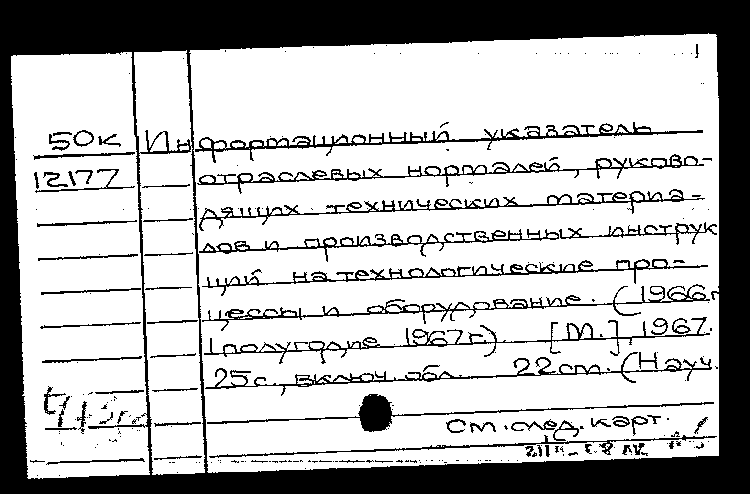 1
50к Информационный указатель
12177 отраслевых нормалей, руково-
дящих технических материа-
лов и производственных инструк
ций на технологические про-
цессы и оборудование. (1966г
1 полугодие 1967г.). [М.], 1967.
25с., включ. обл. 22см. (Науч.
См. след. карт.